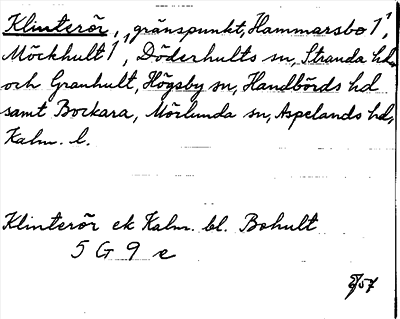 Klinterör, gränspunkt, Hammarsbo 1¹,
Möckhult 1¹, Döderhults sn, Stranda hd
och Granhult, Högsby sn, Handbörds hd
samt Bockara, Mörlunda sn, Aspelands hd,
Kalm. l.
Klinterör ek Kalm. bl. Bohult
5 G 9 e
57